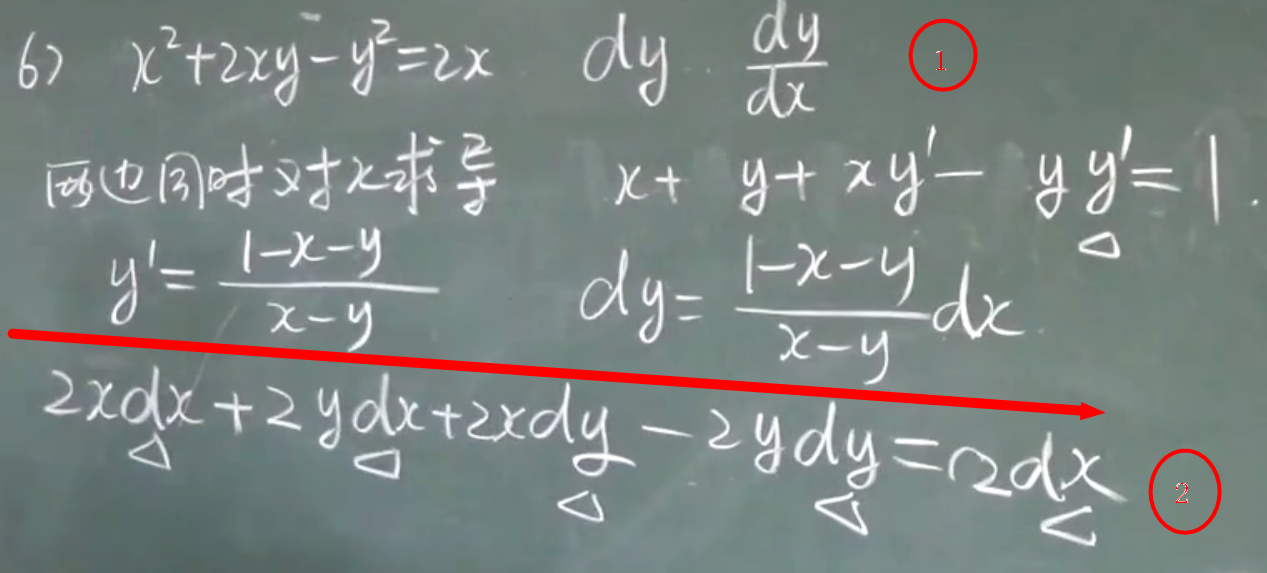 6) x²+2xy-y²=2x dy dy/dx 1
两边同时对x求导 x+ y+xy'- yy'=1.
y'=(1-x-y)/(x-y) dy=(1-x-y)/(x-y)dx
2xdx+2ydx+2xdy-2ydy=2dx 2